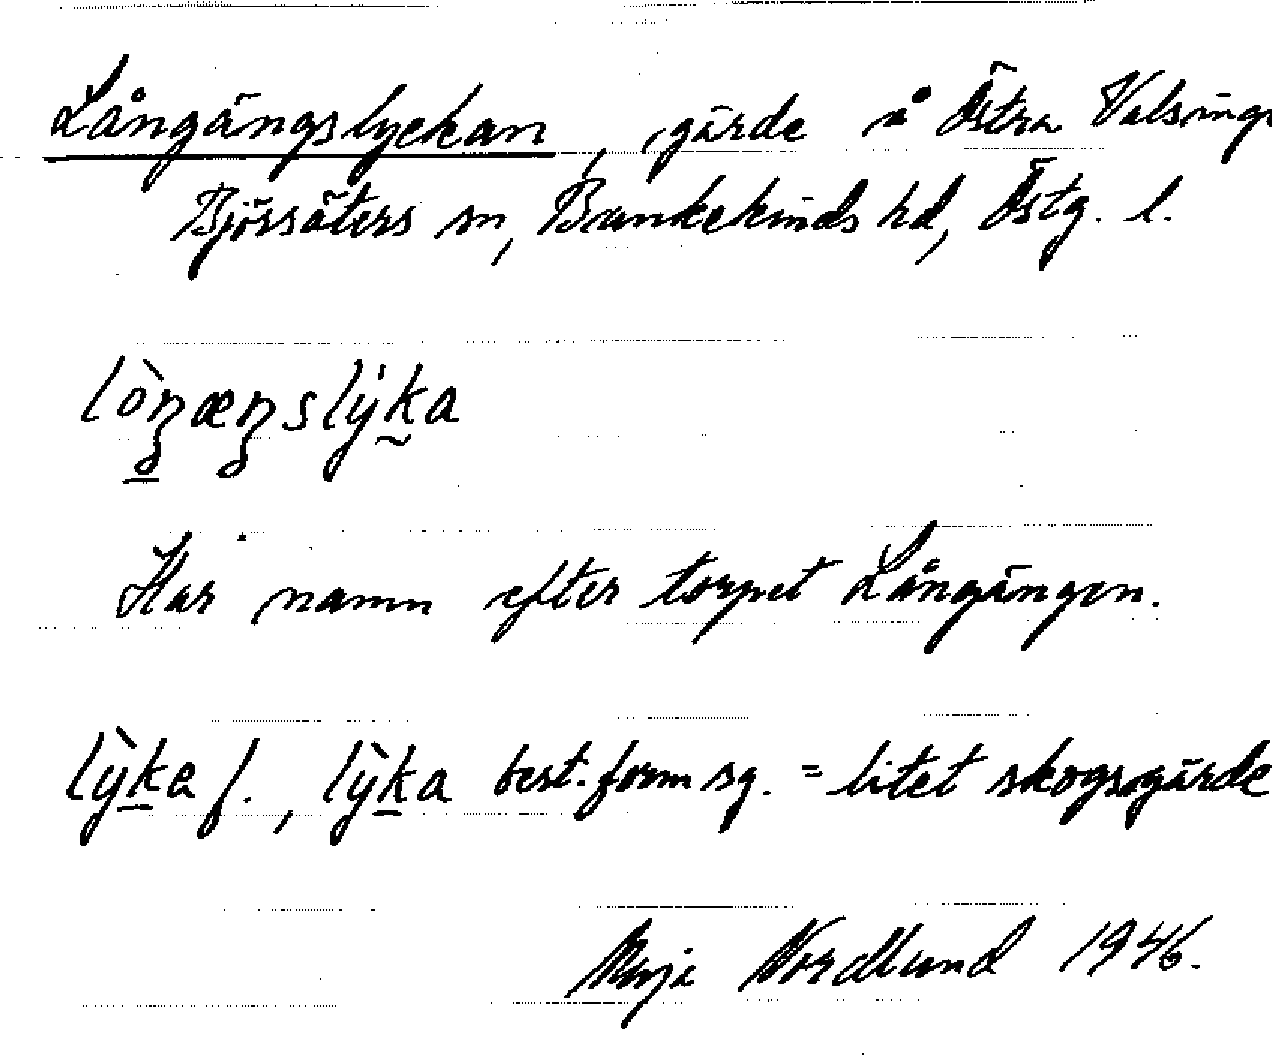 Långängslyckan, gärde å Östra Valsinge
Björsäters sn, Bankekinds hd, Östg. l.
lòŋæŋslýka
Har namn efter torpet Långängen.
lỳka f., lỳka best. form sg. = litet skogsgärde
Nordlund 1946.